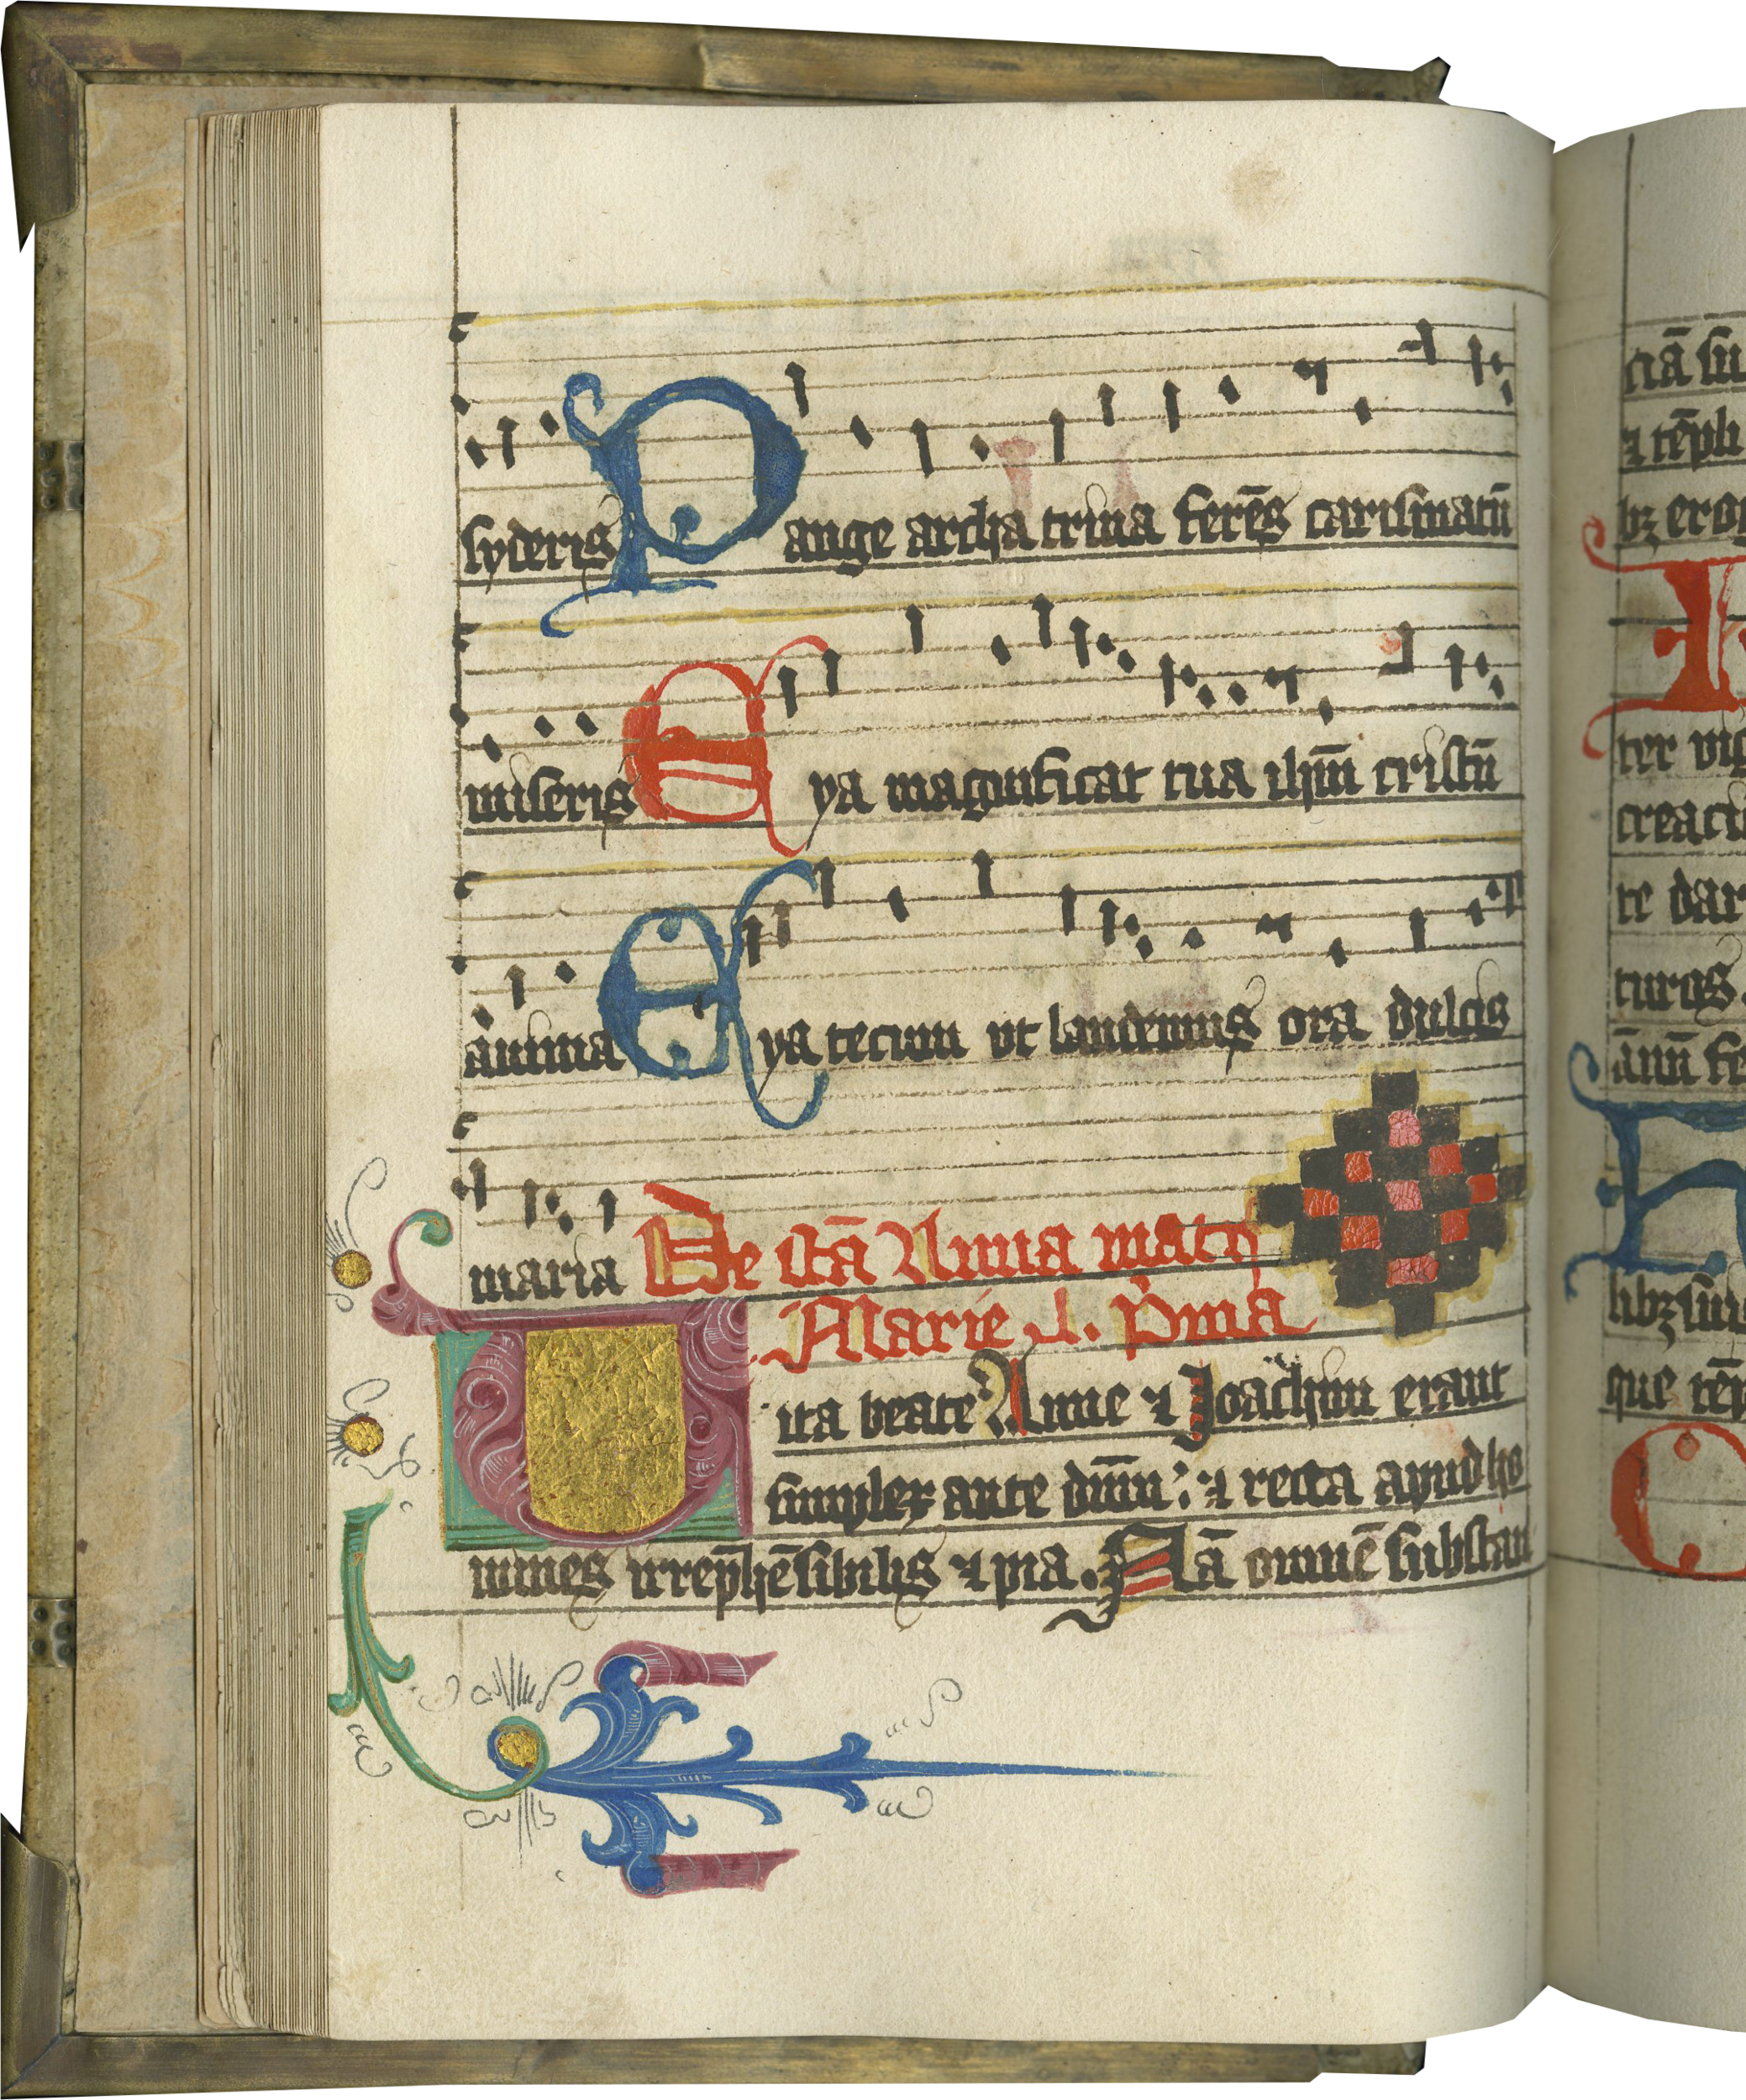 syderis Pange archa trina ferēs carismatū
miseris Eya magnificat tua ihm̄ cristū
anima Eya tecum ut laudemus ora dulcis
maria De sctā Anna matr
Marie .l. p̄ma
Uita beate Anne ⁊ Joachim erant
simplex ante dnm̄: ⁊ recta apud ho
mines irrep̄hēsibilis ⁊ pia. Nā omnē substan
ciā su
⁊ tēpli
bꝫ ero
ter vig
creact
te dar
turos.
ānū fe
libꝫ
que tēp